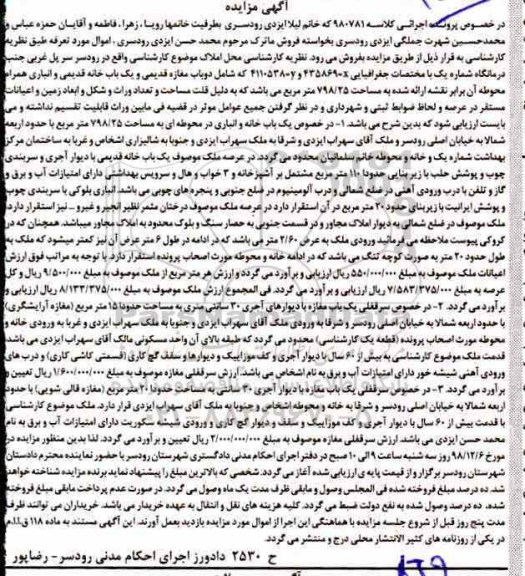 آگهی مزایده
در خصوص پرونده اجرائی کلاسه ۹۸۰۷۸۱ که خانم لیلا ایزدی رودسری بطرفیت خانمها رویا، زهرا، فاطمه و آقایان حمزه عباس و
محمدحسین شهرت جملگی ایزدی رودسری بخواسته فروش ماترک مرحوم محمد حسن ایزدی رودسری، اموال مورد تعرفه طبق نظریه
کارشناسی به قرار ذیل از طریق مزایده بفروش می رود. نظریه کارشناسی محل املاک موضوع کارشناسی واقع در رودسر سر پل غربی جنب
درمانگاه شماره یک با مختصات جغرافیایی ۴۳۵۸۶۹۰x و ۴۱۱۰۵۳۸۰y که شامل دوباب مغازه قدیمی و یک باب خانه قدیمی و انباری همراه
محوطه آن برابر نقشه ارائه شده به مساحت ۷۹۸/۲۵ متر مربع می باشد که به دلیل قلت مساحت و تعداد وراث و شکل و ابعاد زمین و اعیانات
مستقر در عرصه و لحاظ ضوابط ثبتی و شهرداری و در نظر گرفتن جمیع عوامل موثر در قضیه فی مابین وراث قابلیت تقسیم نداشته و می
بایست ارزیابی شود که بدین شرح می باشد. ۱- در خصوص یک باب خانه و انباری در محوطه ای به مساحت ۷۹۸/۲۵ متر مربع با حدود اربعه
شمالا به خیابان اصلی رودسر و ملک آقای سهراب ایزدی و شرقا به ملک سهراب ایزدی و جنوبا به شالیزاری اشخاص و غربا به ساختمان مرکز
بهداشت شماره یک و خانه و محوطه سلمانیان محدود می گردد. در عرصه ملک موصوف یک باب خانه قدیمی با دیوار آجری و سربندی
چوب و پوشش حلب با زیر بنایی حدودا ۱۱۰ متر مربع مشتمل بر آشپزخانه و ۳ خواب و هال و سرویس بهداشتی دارای امتیازات آب و برق و
گاز و تلفن با درب ورودی آهنی در ضلع شمال و درب آلومینیوم در ضلع جنوبی و پنجره های چوبی می باشد. انباری بلوکی با سربندی چوب
و پوشش ایرانیت با زیربنای حدود ۲۰ متر مربع در آن استقرار دارد. در عرصه ملک موصوف درختان مثمر نظیر انجیر و غیره ... نیز استقرار دارد.
ملک موصوف در ضلع شمالی به دیوار املاک مجاور و در قسمت جنوبی به حصار سنگ و بلوک محدود به املاک مجاور میباشد. همچنان که در
کروکی پیوست ملاحظه می فرمائید ورودی ملک به عرض ۲/۶۰ متر می باشد که در ادامه در طول ۶ متر عرض آن نیز کمتر میشود که ملک به
طول حدود ۲۰ متر به صورت کوچه تنگ می باشد که در ادامه خانه و محوطه مورد اصحاب پرونده استقرار دارد. با توجه به مراتب فوق ارزش
اعیانات ملک موصوف به مبلغ ۵۵۰/۰۰۰/۰۰۰ ریال ارزیابی و برآورد می گردد و ارزش هر متر مربع از ملک موصوف به مبلغ ۹/۵۰۰/۰۰۰ ریال و کل
عرصه به مبلغ ۷/۵۸۳/۳۷۵/۰۰۰ ریال ارزیابی و برآورد می گردد. فی المجموع ارزش ملک موصوف به مبلغ ۸/۱۳۳/۳۷۵/۰۰۰ ریال ارزیابی و
برآورد می گردد. ۲- در خصوص سرقفلی یک باب مغازه با دیوارهای آجری ۳۰ سانتی متری به مساحت حدودا ۱۵ متر مربع (مغازه آرایشگری)
با حدود اربعه شمالا به خیابان اصلی رودسر و شرقا به ورودی ملک آقای سهراب ایزدی و جنوبا به ملک سهراب ایزدی و غربا به ورودی خانه و
محوطه مورد اصحاب پرونده (قطعه یک کارشناسی) محدود می گردد که طبقه بالای آن واحد مسکونی مالک آقای سهراب ایزدی می باشد.
قدمت ملک موضوع کارشناسی به بیش از ۶۰ سال با دیوار آجری و کف موزاییک و دیوارها و سقف گچ کاری (قسمتی کاشی کاری) و درب های
ورودی آهنی شیشه خور دارای امتیازات آب و برق به نام اشخاص می باشد. ارزش سرقفلی مغازه موصوف به مبلغ ۱/۶۰۰/۰۰۰/۰۰۰ ریال تعیین و
برآورد می گردد. ۳- در خصوص سرقفلی یک باب مغازه با دیوار آجری ۳۰ سانتی به مساحت حدودا ۲۰ متر مربع (مغازه قالی شویی) با حدود
اربعه شمالا به خیابان اصلی رودسر و شرقا به خانه و محوطه اصحاب پرونده و جنوبا به ملک آقای سهراب ایزدی قرار دارد. ملک موضوع کارشناسی
با قدمت بیش از ۶۰ سال با دیوار آجری و کف موزاییک و سقف و دیوار گچ کاری و ورودی شیشه سکوریت دارای امتیازات آب و برق به نام
محمد حسن ایزدی می باشد. ارزش سرقفلی مغازه موصوف به مبلغ ۲/۰۰۰/۰۰۰/۰۰۰ ریال تعیین و برآورد می گردد. لذا بدین منظور مزایده در
مورخ ۹۸/۱۲/۶ روز سه شنبه ساعت ۹ الی ۱۰ صبح در دفتر اجرای احکام مدنی دادگستری شهرستان رودسر با حضور نماینده محترم دادستان
شهرستان رودسر برگزار و از قیمت پایه ی ارزیابی شده آغاز می گردد. شخصی که بالاترین مبلغ را پیشنهاد نماید برنده مزایده شناخته خواهد
شد. ده درصد مبلغ فروخته شده فی المجلس وصول و مابقی ظرف مدت یک ماه وصول می گردد. در صورت عدم پرداخت مابقی مبلغ فروخته
شده، ده درصد وصول شده به نفع دولت ضبط می گردد. کلیه هزینه های نقل و انتقال به عهده خریدار می باشد. خریداران می توانند ظرف
مدت پنج روز قبل از شروع جلسه مزایده با هماهنگی این اجرا از اموال مورد مزایده بازدید بعمل آورند. این آگهی مستند به ماده ۱۱۸ ق.ا.ا.م
در یکی از روزنامه های کثیر الانتشار محلی درج و منتشر می گردد.
ح ۲۵۳۰ دادورز اجرای احکام مدنی رودسر- رضاپور